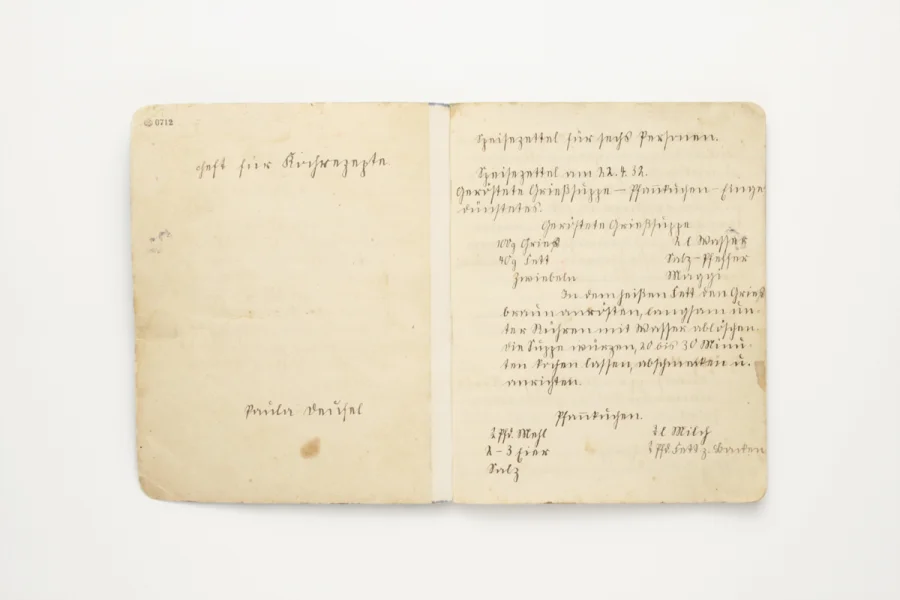 0712
Heft für Kochrezepte
Paula Deuhel
Speisezettel für sechs Personen.
Speisezettel am 22.4.32.
Geröstete Grießsuppe – Pfannkuchen – Einge-
dünstetes.
Geröstete Grießsuppe
100g Grieß
2 l Wasser
40g Fett
Salz – Pfeffer
Zwiebeln
Maggi
In dem heißen Fett den Grieß
braun anrösten, langsam un-
ter Rühren mit Wasser ablöschen.
die Suppe würzen, 20 bis 30 Minu-
ten kochen lassen, abschmecken u.
anrichten.
Pfannkuchen.
Pfd. Mehl
l Milch
2 – 3 Eier
Pfd. Fett z. Backen
Salz